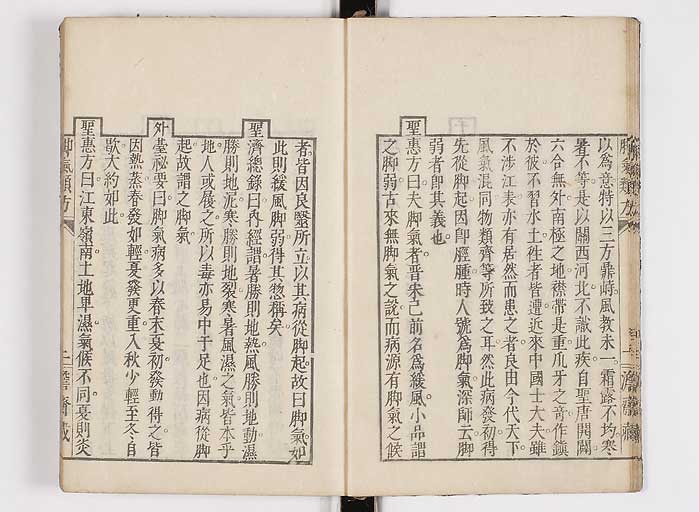 以為意特以三方鼎峙風教未一霜露不均寒
暑不等是以關西河北不識此疾自聖唐開闢
六合無外南極之地襟帶是重爪牙之音作鎮
於彼不習水土徃者皆遭近來中國士大夫雖
不涉江表亦有居然而患之者良由今代天下
風氣混同物類齊等所致之耳然此病發初得
先從脚起因即脛腫時人號為脚氣深師云脚
弱者即其義也
聖惠方曰夫脚氣者晋宋已前名為緩風小品謂
之脚弱古來無脚氣之說而病源有脚氣之候
者皆因良醫所立以其病從脚起故曰脚氣如
此則緩風脚弱得其惣稱矣
聖濟總錄曰內經謂暑勝則地熱風勝則地動濕
勝則地泥寒勝則地裂寒暑風濕之氣皆本乎
地人或履之所以毒亦易中于足也因病從脚
起故謂之脚氣
外臺祕要曰脚氣病多以春末夏初發動得之皆
因熱蒸春發如輕夏發更重入秋少輕至冬自
歇大約如此
聖惠方曰江東嶺南土地卑濕氣候不同夏則炎
脚氣類方